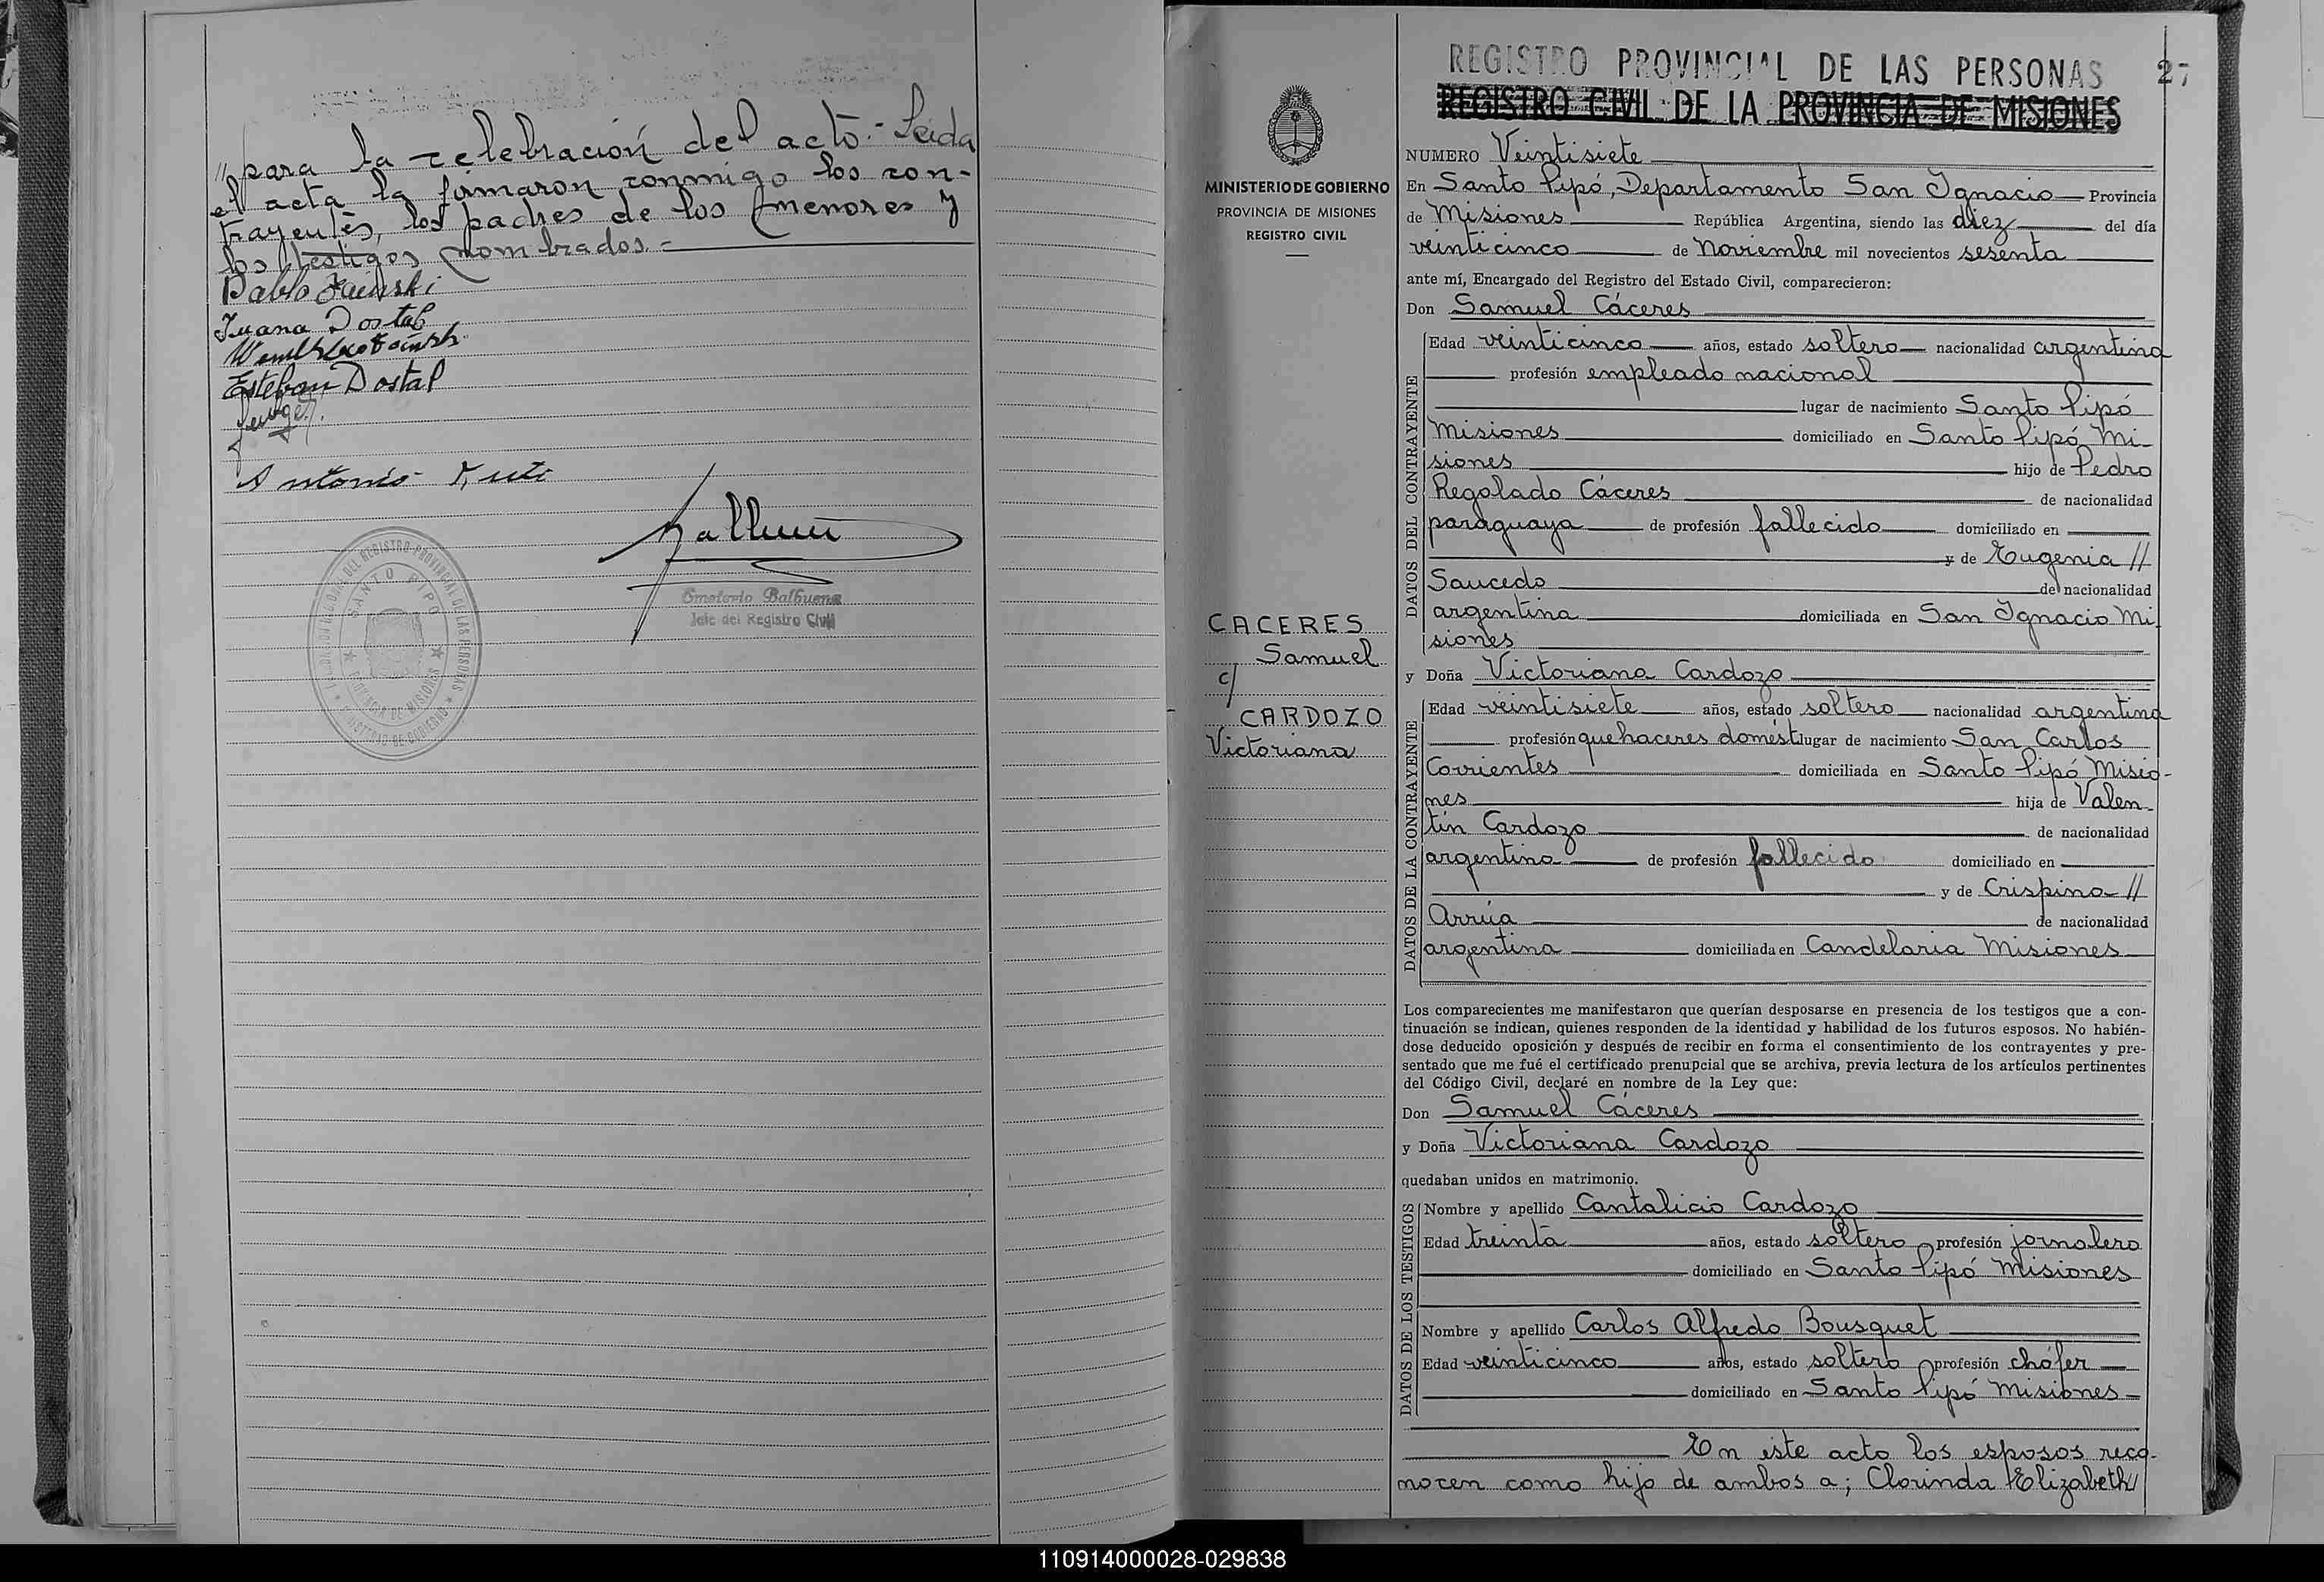 "para la celebración del acto.- Leida
el acta la firmaron conmigo los con-
trayentes, los padres de los menores y
los testigos nombrados.-
Pablo
Juana Dostal
Esteban Dostal
Antonio
Balbuena
Jefe del Registro Civil
SANTO PIPO
PROVINCIA DE MISIONES
REGISTRO PROVINCIAL DE LAS PERSONAS
27
REGISTRO CIVIL DE LA PROVINCIA DE MISIONES
MINISTERIO DE GOBIERNO
PROVINCIA DE MISIONES
REGISTRO CIVIL
CACERES
Samuel
c/
CARDOZO
Victoriana
NUMERO Veintisiete
En Santo Pipó, Departamento San Ignacio Provincia
de Misiones República Argentina, siendo las diez del día
veinticinco de Noviembre mil novecientos sesenta
ante mí, Encargado del Registro del Estado Civil, comparecieron:
Don Samuel Cáceres
DATOS DEL CONTRAYENTE
Edad veinticinco años, estado soltero nacionalidad argentina
profesión empleado nacional
lugar de nacimiento Santo Pipó
Misiones domiciliado en Santo Pipó Mi-
siones hijo de Pedro
Regolado Cáceres de nacionalidad
paraguaya de profesión fallecido domiciliado en
y de Eugenia //
Saucedo de nacionalidad
argentina domiciliada en San Ignacio Mi-
siones
y Doña Victoriana Cardozo
DATOS DE LA CONTRAYENTE
Edad veintisiete años, estado soltero nacionalidad argentina
profesión quehaceres domést. lugar de nacimiento San Carlos
Corrientes domiciliada en Santo Pipó Misio-
nes hija de Valen-
tín Cardozo de nacionalidad
argentina de profesión fallecido domiciliado en
y de Crispina //
Arrúa de nacionalidad
argentina domiciliada en Candelaria Misiones
Los comparecientes me manifestaron que querían desposarse en presencia de los testigos que a con-
tinuación se indican, quienes responden de la identidad y habilidad de los futuros esposos. No habién-
dose deducido oposición y después de recibir en forma el consentimiento de los contrayentes y pre-
sentado que me fué el certificado prenupcial que se archiva, previa lectura de los artículos pertinentes
del Código Civil, declaré en nombre de la Ley que:
Don Samuel Cáceres
y Doña Victoriana Cardozo
quedaban unidos en matrimonio.
DATOS DE LOS TESTIGOS
Nombre y apellido Cantalicio Cardozo
Edad treinta años, estado soltero profesión jornalero
domiciliado en Santo Pipó Misiones
Nombre y apellido Carlos Alfredo Bousquet
Edad veinticinco años, estado soltero profesión chófer
domiciliado en Santo Pipó Misiones
En este acto los esposos reco-
nocen como hijo de ambos a; Clorinda Elizabeth
110914000028-029838